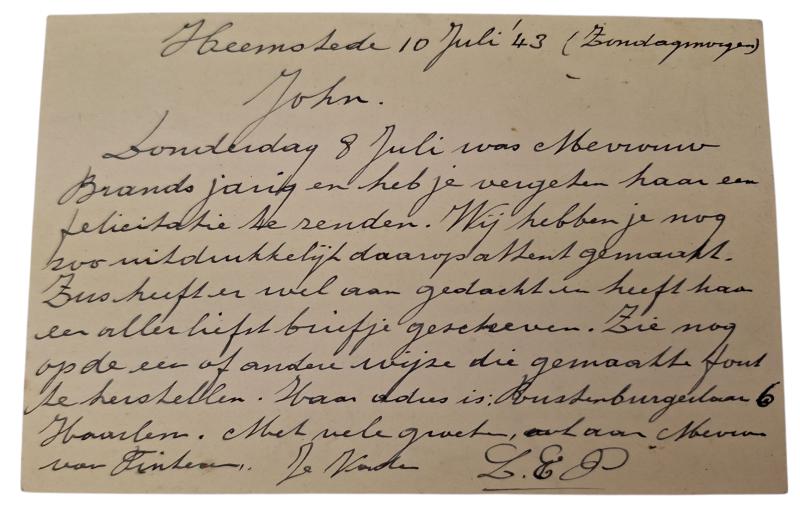 Heemstede 10 Juli '43 (Zondagmorgen)
John.
Donderdag 8 Juli was Mevrouw
Brands jarig en heb je vergeten haar een
felicitatie te zenden. Wij hebben je nog
zoo uitdrukkelijk daarop attent gemaakt.
Zus heeft er wel aan gedacht en heeft haar
een allerliefst briefje geschreven. Zie nog
op de een of andere wijze die gemaakte fout
te herstellen. Haar adres is: Rustenburgerlaan 6
Haarlem. Met vele groeten, ook aan Mevrouw
van Je Vader L.E.P